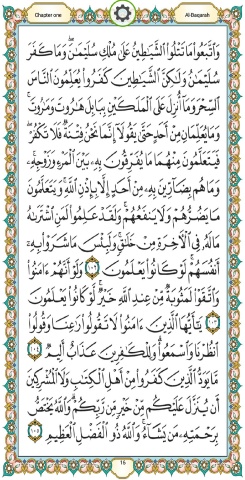 Chapter one
Al-Baqarah
وَاتَّبَعُوا مَا تَتْلُوا الشَّيَاطِينُ عَلَىٰ مُلْكِ سُلَيْمَانَ ۖ وَمَا كَفَرَ
سُلَيْمَانُ وَلَٰكِنَّ الشَّيَاطِينَ كَفَرُوا يُعَلِّمُونَ النَّاسَ
السِّحْرَ وَمَا أُنْزِلَ عَلَى الْمَلَكَيْنِ بِبَابِلَ هَارُوتَ وَمَارُوتَ ۚ
وَمَا يُعَلِّمَانِ مِنْ أَحَدٍ حَتَّىٰ يَقُولَا إِنَّمَا نَحْنُ فِتْنَةٌ فَلَا تَكْفُرْ ۖ
فَيَتَعَلَّمُونَ مِنْهُمَا مَا يُفَرِّقُونَ بِهِ بَيْنَ الْمَرْءِ وَزَوْجِهِ ۚ
وَمَا هُمْ بِضَارِّينَ بِهِ مِنْ أَحَدٍ إِلَّا بِإِذْنِ اللَّهِ ۚ وَيَتَعَلَّمُونَ
مَا يَضُرُّهُمْ وَلَا يَنْفَعُهُمْ ۚ وَلَقَدْ عَلِمُوا لَمَنِ اشْتَرَاهُ
مَا لَهُ فِي الْآخِرَةِ مِنْ خَلَاقٍ ۚ وَلَبِئْسَ مَا شَرَوْا بِهِ
أَنْفُسَهُمْ ۚ لَوْ كَانُوا يَعْلَمُونَ ١٠٢ وَلَوْ أَنَّهُمْ آمَنُوا
وَاتَّقَوْا لَمَثُوبَةٌ مِنْ عِنْدِ اللَّهِ خَيْرٌ ۖ لَوْ كَانُوا يَعْلَمُونَ
١٠٣ يَا أَيُّهَا الَّذِينَ آمَنُوا لَا تَقُولُوا رَاعِنَا وَقُولُوا
انْظُرْنَا وَاسْمَعُوا ۗ وَلِلْكَافِرِينَ عَذَابٌ أَلِيمٌ ١٠٤
مَا يَوَدُّ الَّذِينَ كَفَرُوا مِنْ أَهْلِ الْكِتَابِ وَلَا الْمُشْرِكِينَ
أَنْ يُنَزَّلَ عَلَيْكُمْ مِنْ خَيْرٍ مِنْ رَبِّكُمْ ۗ وَاللَّهُ يَخْتَصُّ
بِرَحْمَتِهِ مَنْ يَشَاءُ ۚ وَاللَّهُ ذُو الْفَضْلِ الْعَظِيمِ ١٠٥
16